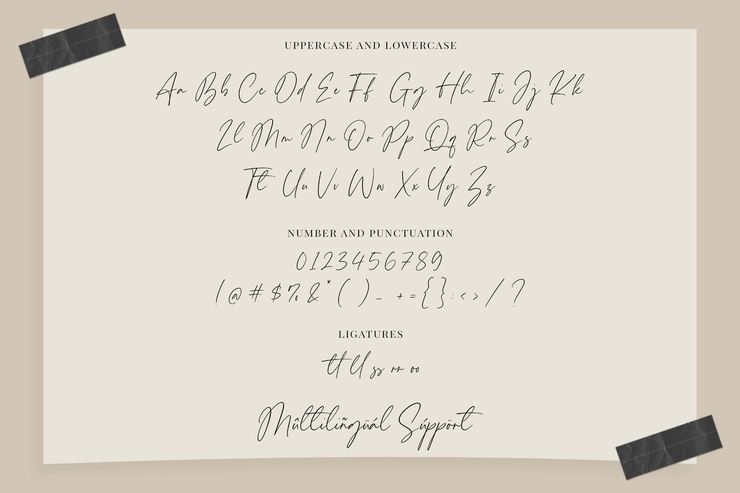 UPPERCASE AND LOWERCASE
Aa Bb Cc Dd Ee Ff Gg Hh Ii Jj Kk
Ll Mm Nn Oo Pp Qq Rr Ss
Tt Uu Vv Ww Xx Yy Zz
NUMBER AND PUNCTUATION
0123456789
! @ # $ % & * ( ) _ + = { } : < > / ?
LIGATURES
tt ll ss rr oo
Múltilingüál Súppört